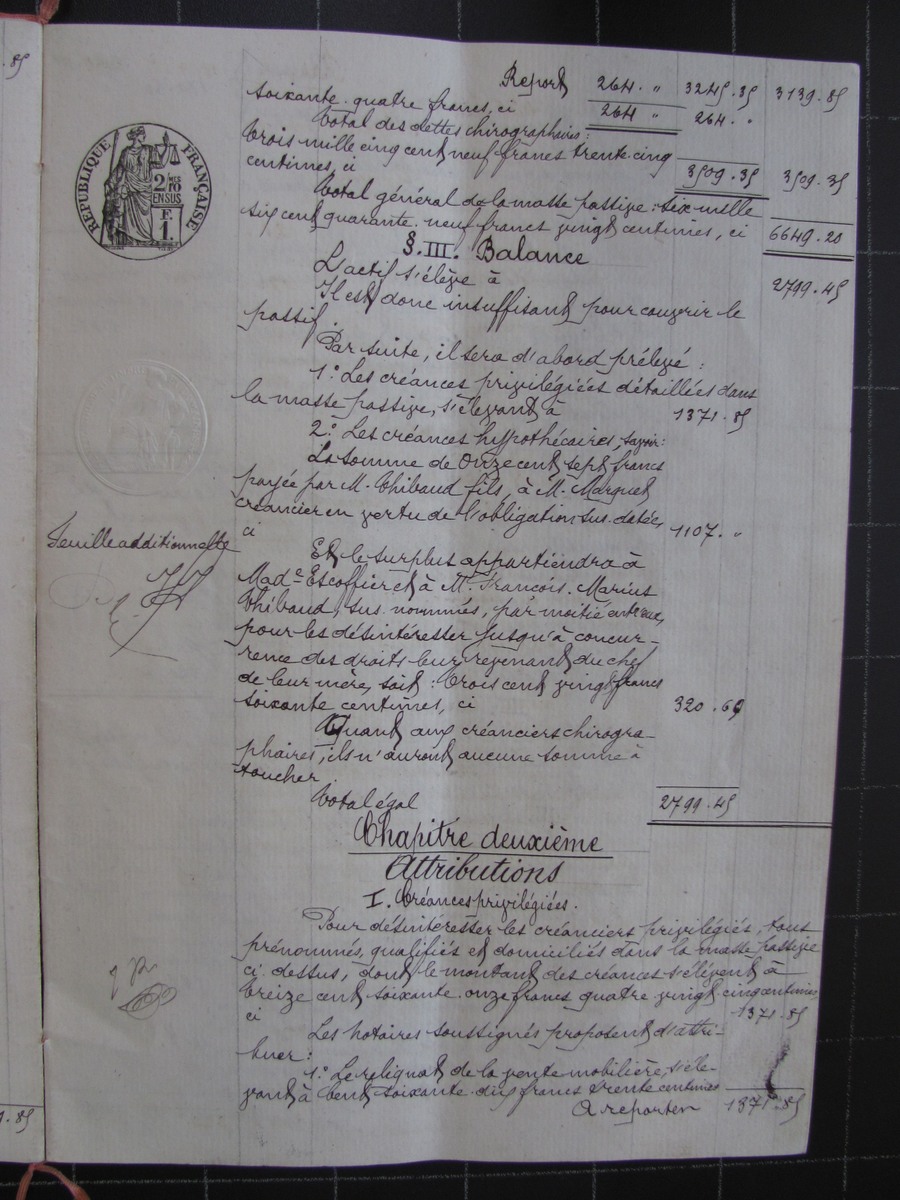 .85
Report 264. " 3245.35 3139.85
soixante-quatre francs, ci 264 " 264. "
Total des dettes chirographaires:
trois mille cinq cent neuf francs trente-cinq
centimes, ci 3509.35 3509.35
Total général de la masse passive: six mille
six cent quarante-neuf francs vingt centimes, ci 6649.20
RÉPUBLIQUE FRANÇAISE
2/10
EN SUS
F.
1.
§. III. Balance
L'actif s'élève à 2799.45
Il est donc insuffisant pour couvrir le
passif.
Par suite, il sera d'abord prélevé:
1° Les créances privilégiées détaillées dans
la masse passive, s'élevant à 1371.85
2° Les créances hypothécaires, savoir:
La somme de onze cent sept francs
payée par M. Thibaud fils, à M. Marquet
créancier en vertu de l'obligation sus-datée,
ci 1107. "
Feuille additionnelle
Et le surplus appartiendra à
Made Escoffier et à Mr François-Marius
Thibaud, sus-nommés, par moitié entr'eux,
pour les désintéresser jusqu'à concur-
rence des droits leur revenant du chef
de leur mère, soit: trois cent vingt francs
soixante centimes, ci 320.60
Quant aux créanciers chirogra-
phaires, ils n'auront aucune somme à
toucher
Total égal 2799.45
Chapitre deuxième
Attributions
I. Créances privilégiées.
Pour désintéresser les créanciers privilégiés, tous
prénommés, qualifiés et domiciliés dans la masse passive
ci-dessus, dont le montant des créances s'élèvent à
treize cent soixante-onze francs quatre-vingt-cinq centimes,
ci 1371.85
Les notaires soussignés proposent d'attri-
buer:
1° Le reliquat de la vente mobilière, s'éle-
vant à cent soixante-dix francs trente centimes
A reporter 1371.85
.85